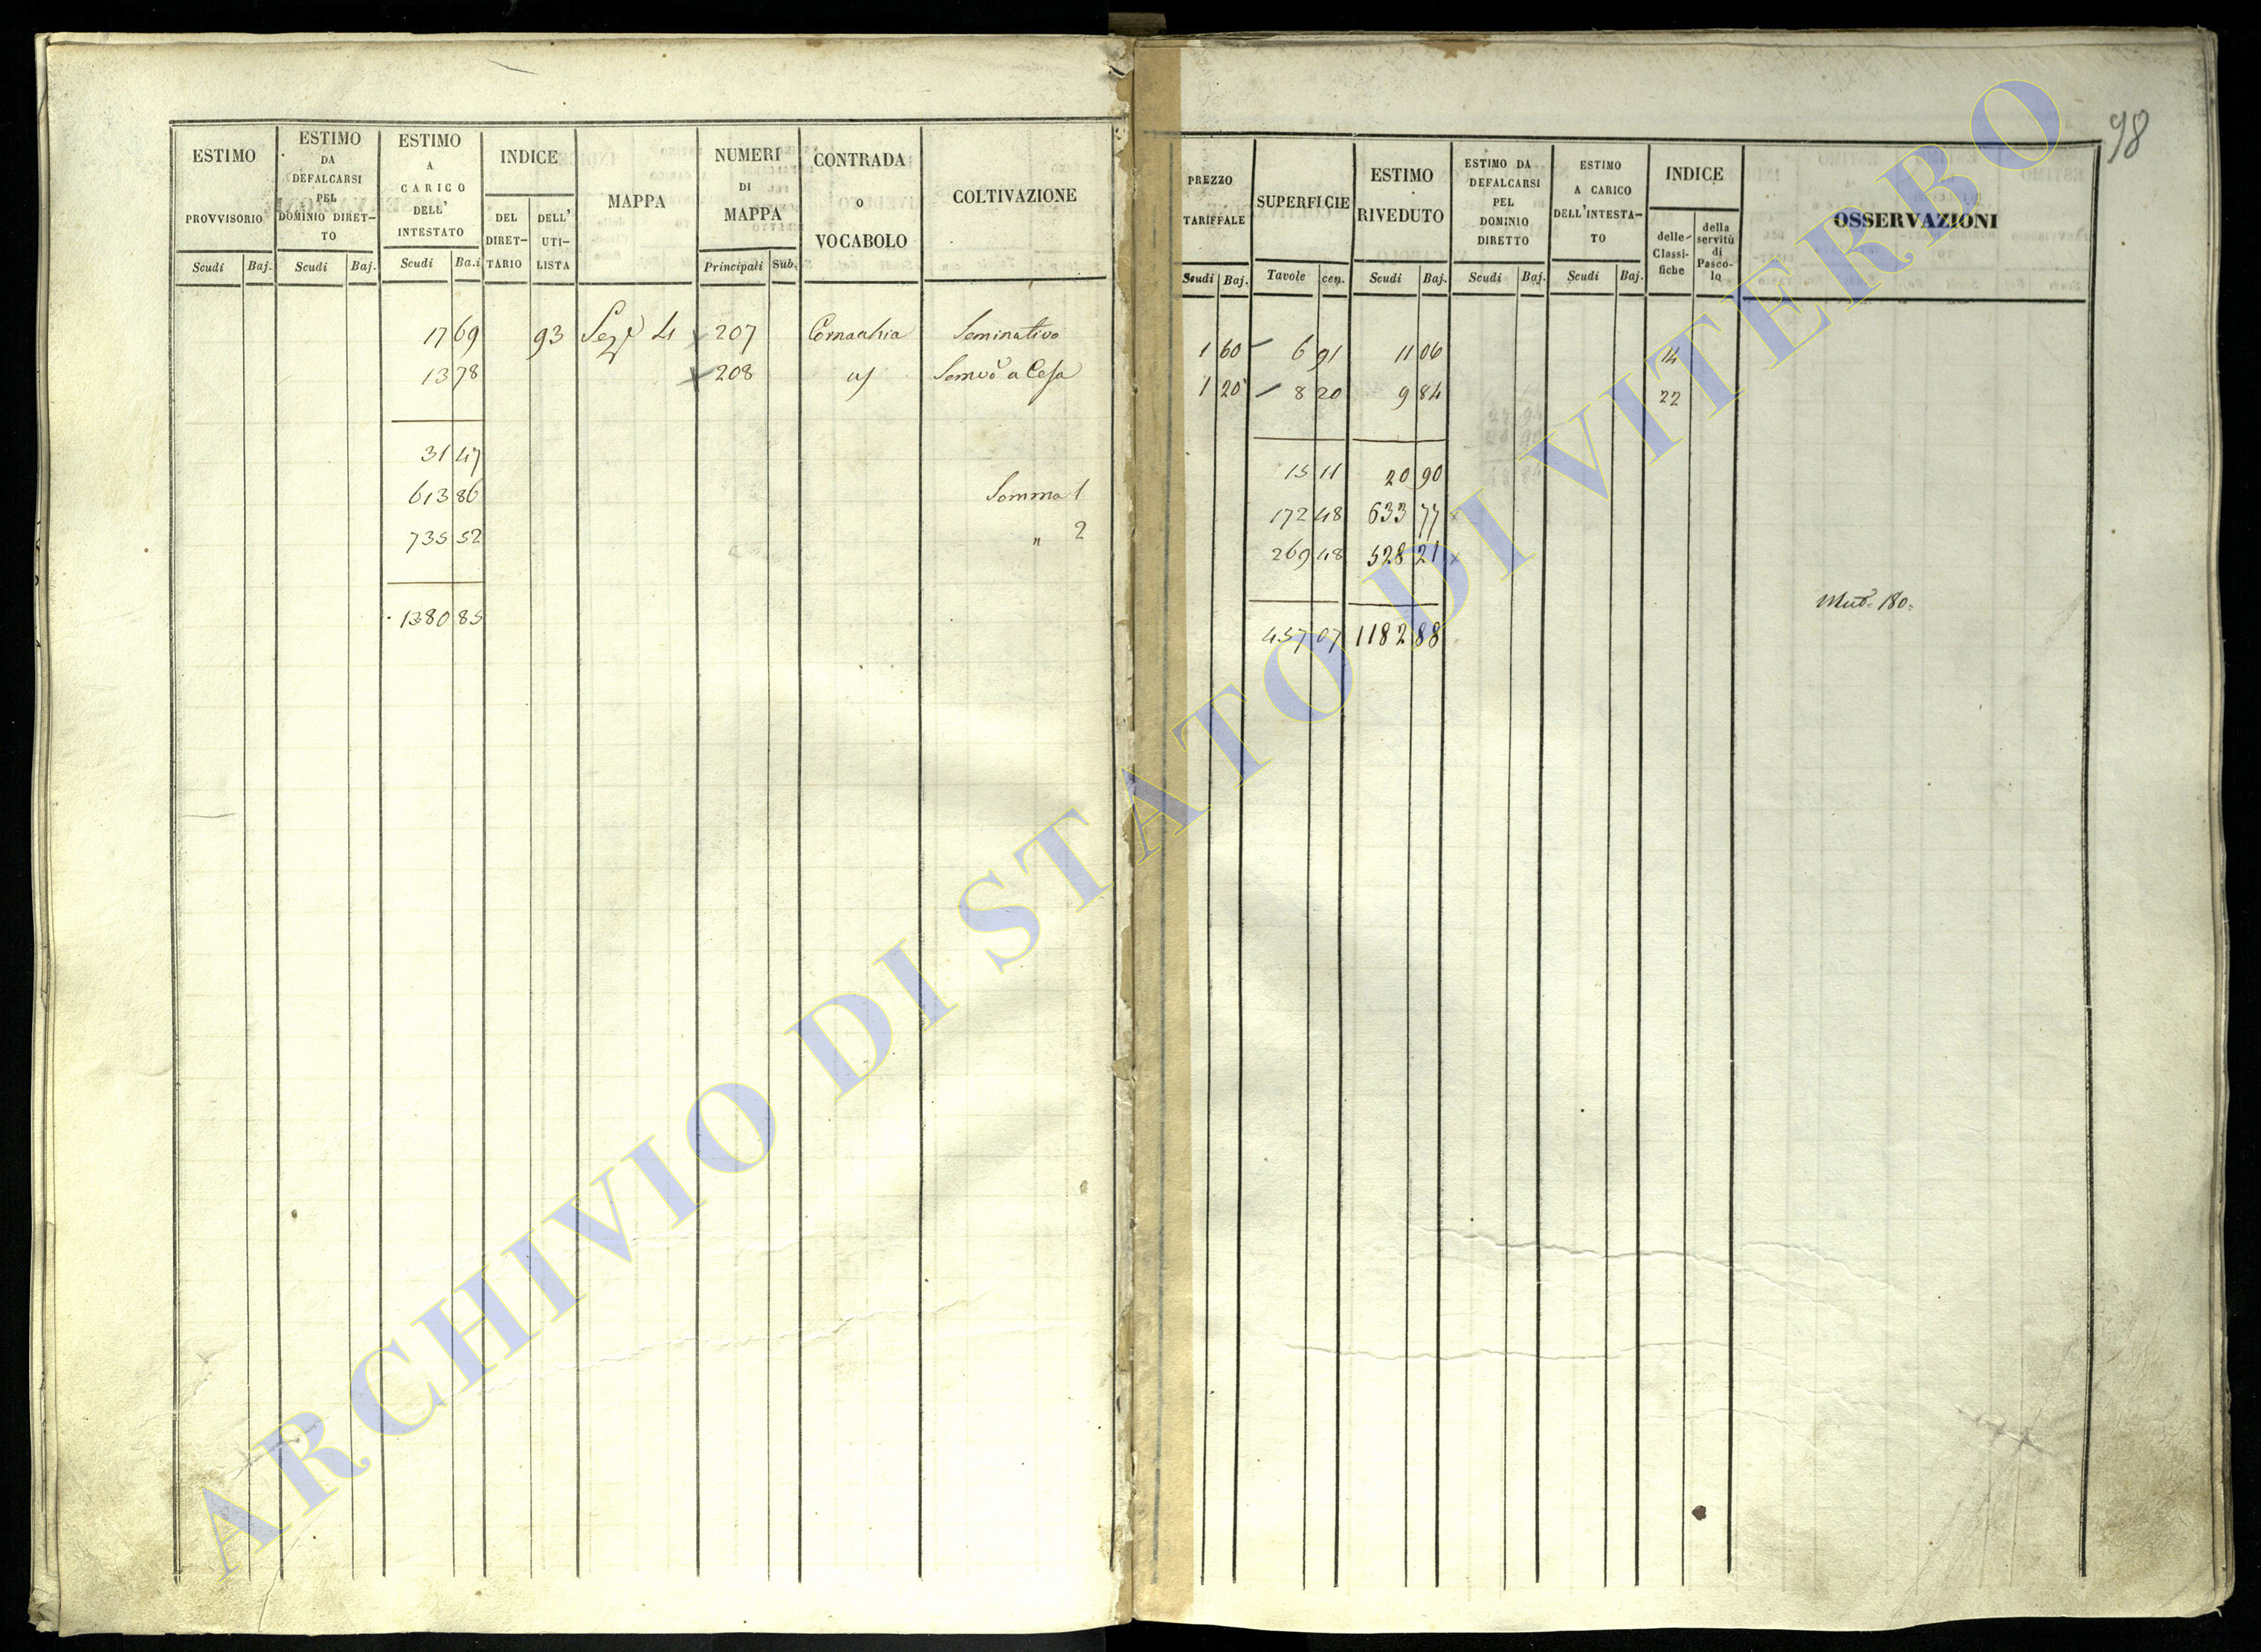 98
ESTIMO PROVVISORIO
Scudi Baj.
ESTIMO DA DEFALCARSI PEL DOMINIO DIRET-TO
Scudi Baj.
ESTIMO A CARICO DELL' INTESTATO
Scudi Ba.i
INDICE
DEL DIRET-TARIO
DELL' UTI-LISTA
MAPPA
NUMERI DI MAPPA
Principali Sub.
CONTRADA o VOCABOLO
COLTIVAZIONE
17 69 93 Sez.e 4 207 Cornacchia Seminativo
13 78 208 Semvo a Cesa
31 47
613 86 Somma 1
735 52 " 2
1380 85
PREZZO TARIFFALE
Scudi Baj.
SUPERFICIE
Tavole cen.
ESTIMO RIVEDUTO
Scudi Baj.
ESTIMO DA DEFALCARSI PEL DOMINIO DIRETTO
Scudi Baj.
ESTIMO A CARICO DELL'INTESTA-TO
Scudi Baj.
INDICE
delle Classi-fiche
della servitù di Pasco-lo
OSSERVAZIONI
1 60 6 91 11 06 14
1 20 8 20 9 84 22
15 11 20 90
172 48 633 77
269 48 528 21
Mut. 180
457 07 1182 88
ARCHIVIO DI STATO DI VITERBO